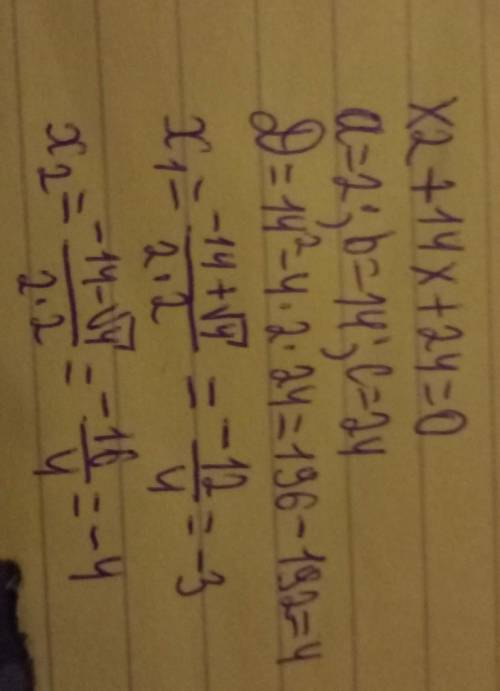 x2+14x+24=0
a=2; b=14; c=24
D=14²-4·2·24=196-192=4
x₁=(-14+√4)/(2·2)=-12/4=-3
x₂=(-14-√4)/(2·2)=-16/4=-4